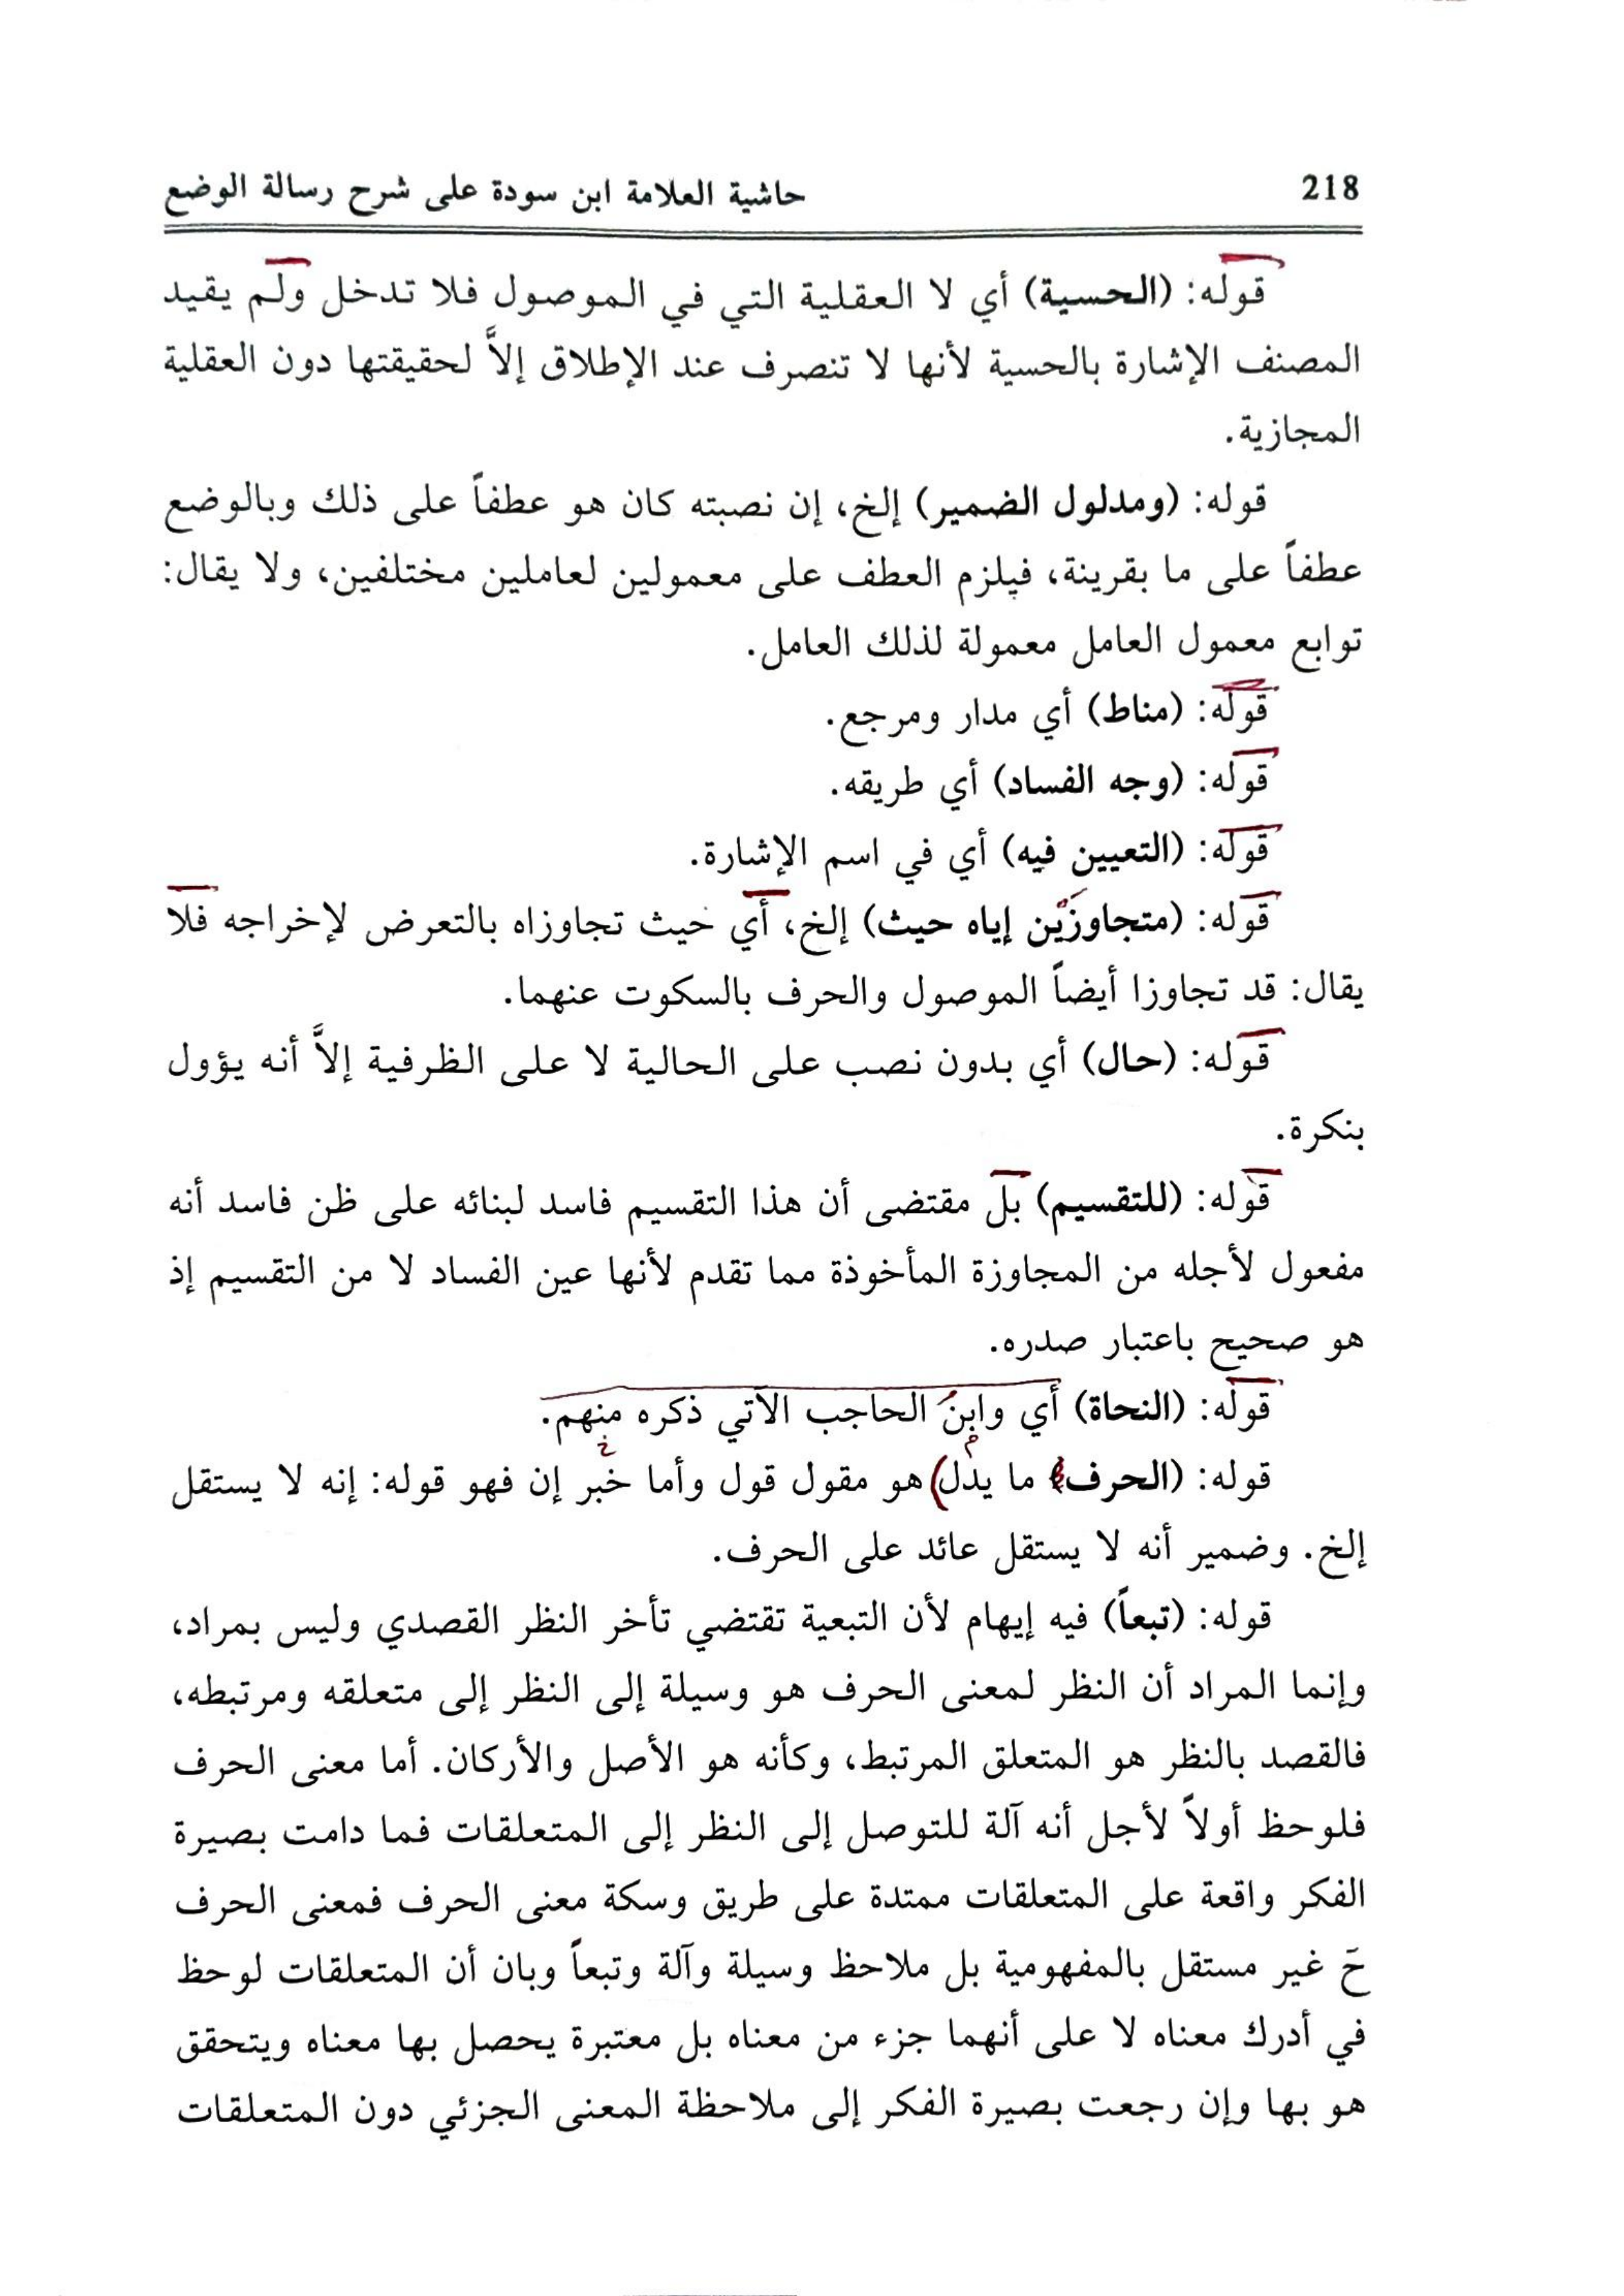 218 حاشية العلامة ابن سودة على شرح رسالة الوضع
قوله: (الحسية) أي لا العقلية التي في الموصول فلا تدخل ولم يقيد
المصنف الإشارة بالحسية لأنها لا تنصرف عند الإطلاق إلاَّ لحقيقتها دون العقلية
المجازية.
قوله: (ومدلول الضمير) إلخ، إن نصبته كان هو عطفاً على ذلك وبالوضع
عطفاً على ما بقرينة، فيلزم العطف على معمولين لعاملين مختلفين، ولا يقال:
توابع معمول العامل معمولة لذلك العامل.
قوله: (مناط) أي مدار ومرجع.
قوله: (وجه الفساد) أي طريقه.
قوله: (التعيين فيه) أي في اسم الإشارة.
قوله: (متجاوزَيْن إياه حيث) إلخ، أي حيث تجاوزاه بالتعرض لإخراجه فلا
يقال: قد تجاوزا أيضاً الموصول والحرف بالسكوت عنهما.
قوله: (حال) أي بدون نصب على الحالية لا على الظرفية إلاَّ أنه يؤول
بنكرة.
قوله: (للتقسيم) بل مقتضى أن هذا التقسيم فاسد لبنائه على ظن فاسد أنه
مفعول لأجله من المجاوزة المأخوذة مما تقدم لأنها عين الفساد لا من التقسيم إذ
هو صحيح باعتبار صدره.
قوله: (النحاة) أي وابن الحاجب الآتي ذكره منهم.
قوله: (الحرف) ما يدل) هو مقول قول وأما خبر إن فهو قوله: إنه لا يستقل
إلخ. وضمير أنه لا يستقل عائد على الحرف.
قوله: (تبعاً) فيه إيهام لأن التبعية تقتضي تأخر النظر القصدي وليس بمراد،
وإنما المراد أن النظر لمعنى الحرف هو وسيلة إلى النظر إلى متعلقه ومرتبطه،
فالقصد بالنظر هو المتعلق المرتبط، وكأنه هو الأصل والأركان. أما معنى الحرف
فلوحظ أولاً لأجل أنه آلة للتوصل إلى النظر إلى المتعلقات فما دامت بصيرة
الفكر واقعة على المتعلقات ممتدة على طريق وسكة معنى الحرف فمعنى الحرف
حَ غير مستقل بالمفهومية بل ملاحظ وسيلة وآلة وتبعاً وبان أن المتعلقات لوحظ
في أدرك معناه لا على أنهما جزء من معناه بل معتبرة يحصل بها معناه ويتحقق
هو بها وإن رجعت بصيرة الفكر إلى ملاحظة المعنى الجزئي دون المتعلقات